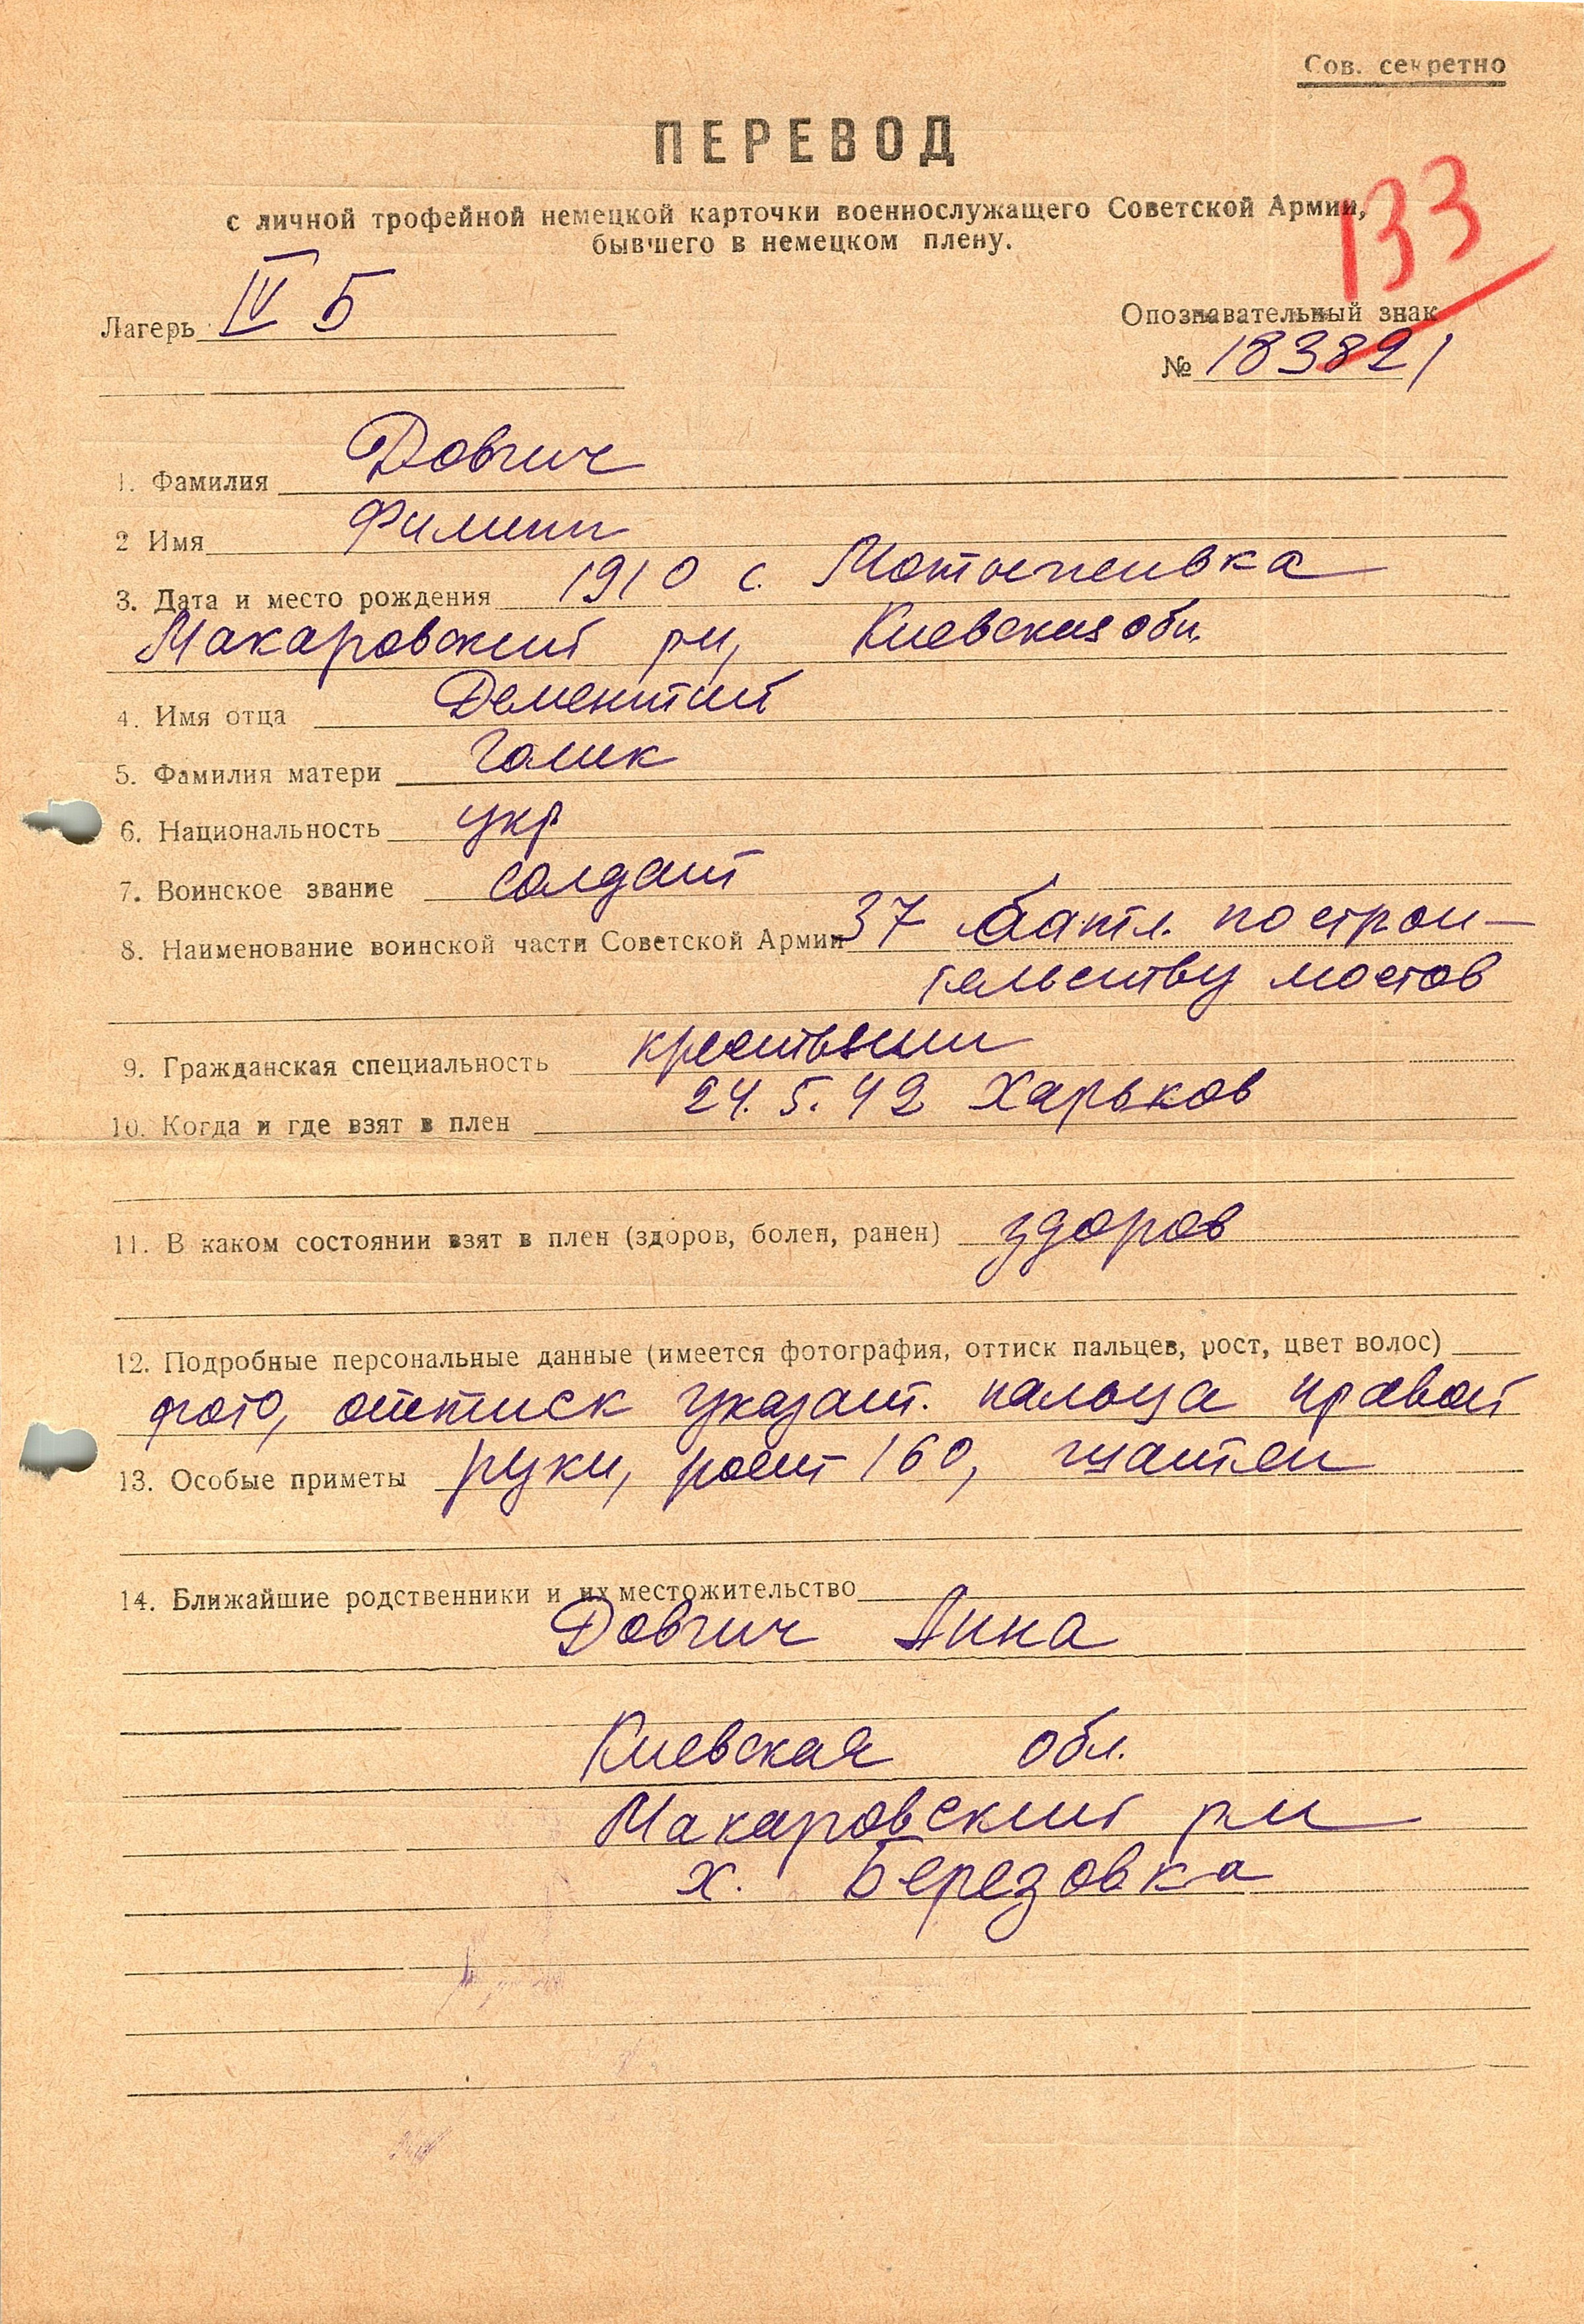 Сов. секретно
ПЕРЕВОД
133
с личной трофейной немецкой карточки военнослужащего Советской Армии,
бывшего в немецком плену.
Лагерь IV Б
Опознавательный знак
№ 183821
1. Фамилия Довгич
2 Имя Филипп
3. Дата и место рождения 1910 с.
Макаровский рн, Киевская обл.
4. Имя отца Дементий
5. Фамилия матери Голик
6. Национальность укр
7. Воинское звание солдат
8. Наименование воинской части Советской Армии 37 батл. по строи-
тельству мостов
9. Гражданская специальность крестьянин
10. Когда и где взят в плен 24. 5. 42 Харьков
11. В каком состоянии взят в плен (здоров, болен, ранен) здоров
12. Подробные персональные данные (имеется фотография, оттиск пальцев, рост, цвет волос)
фото, оттиск указат. пальца правой
13. Особые приметы руки, рост 160, шатен
14. Ближайшие родственники и их местожительство
Довгич Анна
Киевская обл.
Макаровский рн
х. Березовка